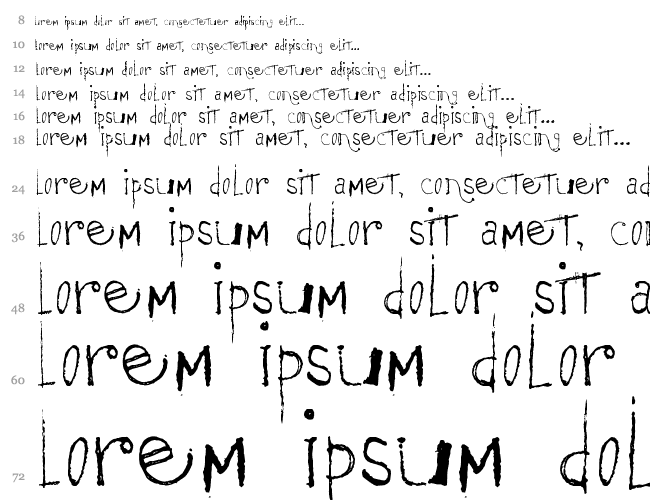 8 Lorem ipsum dolor sit amet, consectetuer adipiscing elit...
10 Lorem ipsum dolor sit amet, consectetuer adipiscing elit...
12 Lorem ipsum dolor sit amet, consectetuer adipiscing elit...
14 Lorem ipsum dolor sit amet, consectetuer adipiscing elit...
16 Lorem ipsum dolor sit amet, consectetuer adipiscing elit...
18 Lorem ipsum dolor sit amet, consectetuer adipiscing elit...
24 Lorem ipsum dolor sit amet, consectetuer ad
36 Lorem ipsum dolor sit amet, con
48 Lorem ipsum dolor sit a
60 Lorem ipsum dolor
72 Lorem ipsum dol